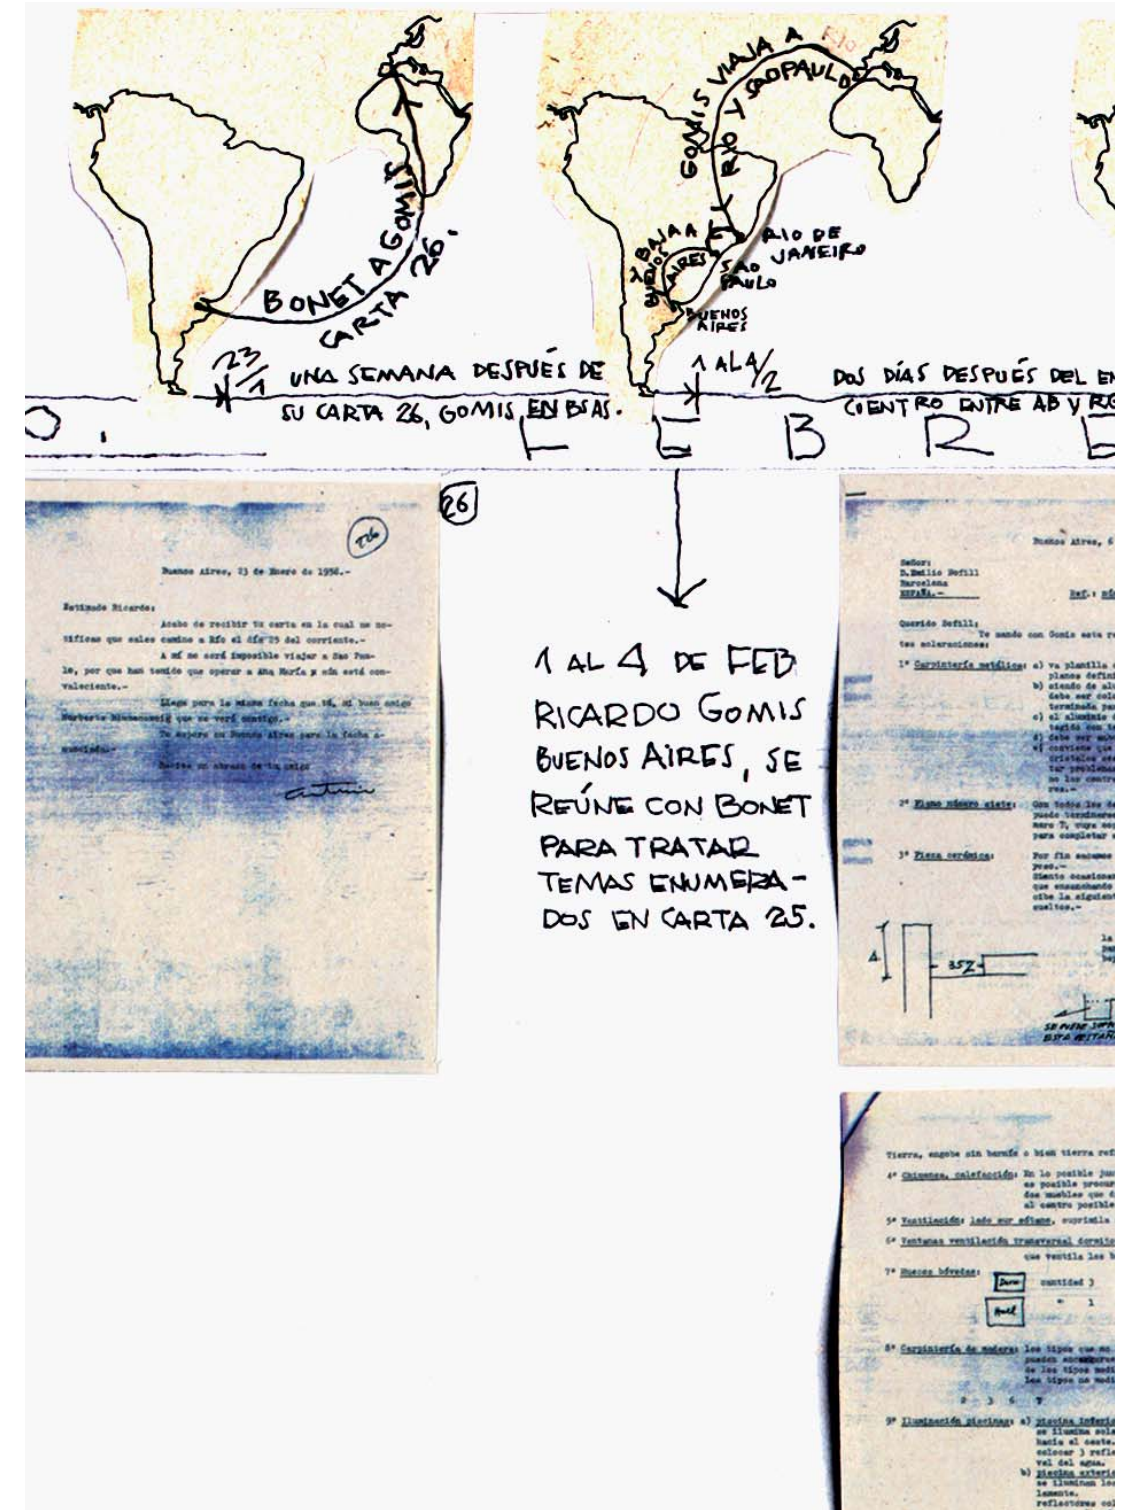 BONET A GOMIS
CARTA 26.
GOMIS VIAJA A
RIO Y SAO PAULO
Y BAJA A
BUENOS
AIRES
RIO DE
JANEIRO
SAO
PAULO
BUENOS
AIRES
23/1
UNA SEMANA DESPUÉS DE
SU CARTA 26, GOMIS, EN BSAS.
1 AL 4/2
DOS DÍAS DESPUÉS DEL EN
CUENTRO ENTRE AB Y RG
O.
F E B R E
26
Buenos Aires, 23 de Enero de 1956.-
Estimado Ricardo:
Acabo de recibir tu carta en la cual me no-
tificas que sales camino a Río el día 25 del corriente.-
A mí me será imposible viajar a Sao Pau-
lo, por que han tenido que operar a Ana María y aún está con-
valeciente.-
Llega para la misma fecha que tú, mi buen amigo
que se verá contigo.-
Te espero en Buenos Aires para la fecha a-
nunciada.-
Recibe un abrazo de tu amigo
1 AL 4 DE FEB
RICARDO GOMIS
BUENOS AIRES, SE
REÚNE CON BONET
PARA TRATAR
TEMAS ENUMERA-
DOS EN CARTA 25.
Buenos Aires, 6
Señor:
D. Emilio Bofill
Barcelona
ESPAÑA.-
Ref.:
Querido Bofill:
Te mando con Gomis esta re
tes aclaraciones:
1º Carpintería metálica: a) va planilla
planos defini
b) siendo de alu
debe ser colo
terminada pa
c) el aluminio
2º Plano número siete: Con todos los
puede terminarse
para completar
3º Pieza cerámica: Por fin sacamos
peso.-
Siento
que ensanchando
cibe la siguiente
sueltos.-
4
35Z
Tierra, engobe sin barniz o bien tierra ref
4º Chimenea, calefacción: En lo posible
es posible procur
dos muebles que
al centro posible
5º Ventilación: lado sur sótano, suprimila
6º Ventanas ventilación transversal dormito
que ventila los
7º Huecos bóvedas:
cantidad 3
" 1
8º Carpintería de madera: los tipos que no
pueden
de los tipos modi
los tipos no modi
2 3 6 7
9º Iluminación piscinas: a) piscina inferio
se ilumina sola
hacia el oeste.
colocar 3 refle
vel del agua.
b) piscina exterio
se iluminan los
lamente.
reflectores col